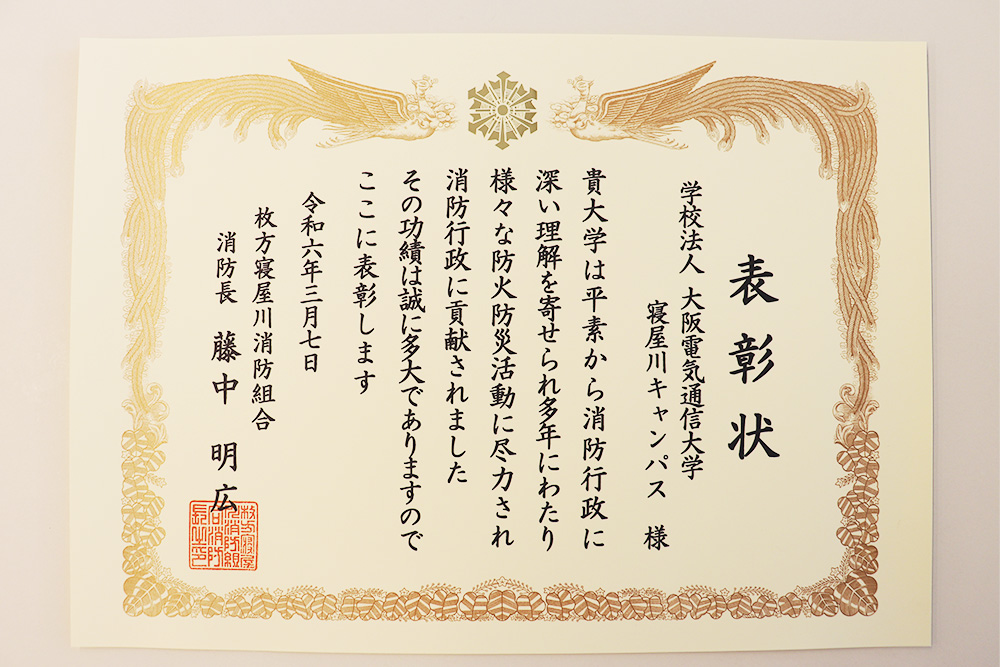 表彰状
学校法人 大阪電気通信大学
寝屋川キャンパス 様
貴大学は平素から消防行政に
深い理解を寄せられ多年にわたり
様々な防火防災活動に尽力され
消防行政に貢献されました
その功績は誠に多大でありますので
ここに表彰します
令和六年三月七日
枚方寝屋川消防組合
消防長 藤中 明広
枚方寝屋
川消防組
合消防
長之印